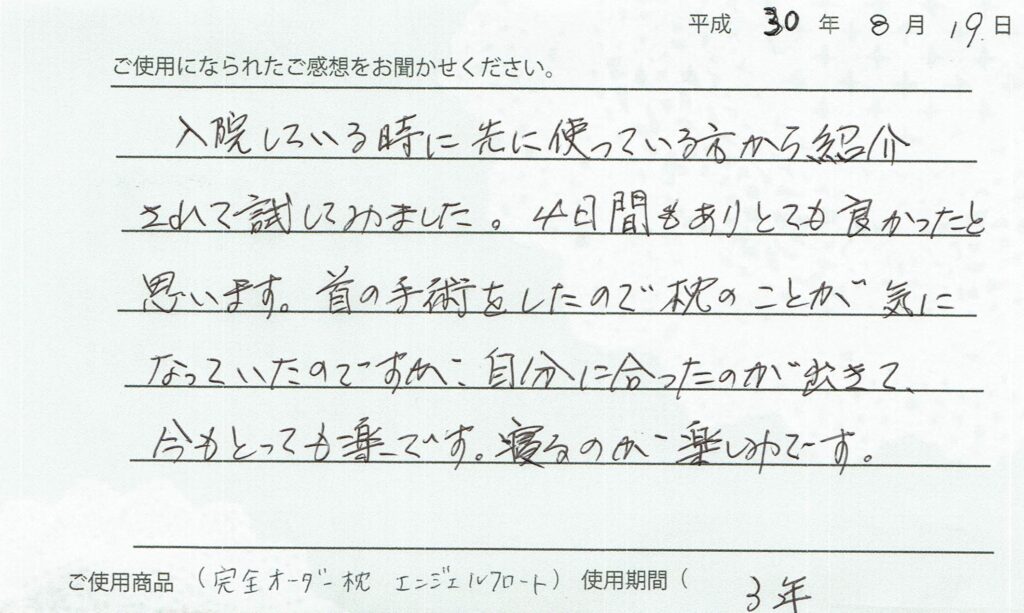 平成 30 年 8 月 19 日
ご使用になられたご感想をお聞かせください。
入院している時に先に使っている方から紹介
されて試してみました。4日間もありとても良かったと
思います。首の手術をしたので枕のことが気に
なっていたのですが、自分に合ったのが出きて、
今もとっても楽です。寝るのが楽しみです。
ご使用商品 (完全オーダー枕 エンジェルフロート) 使用期間 ( 3年